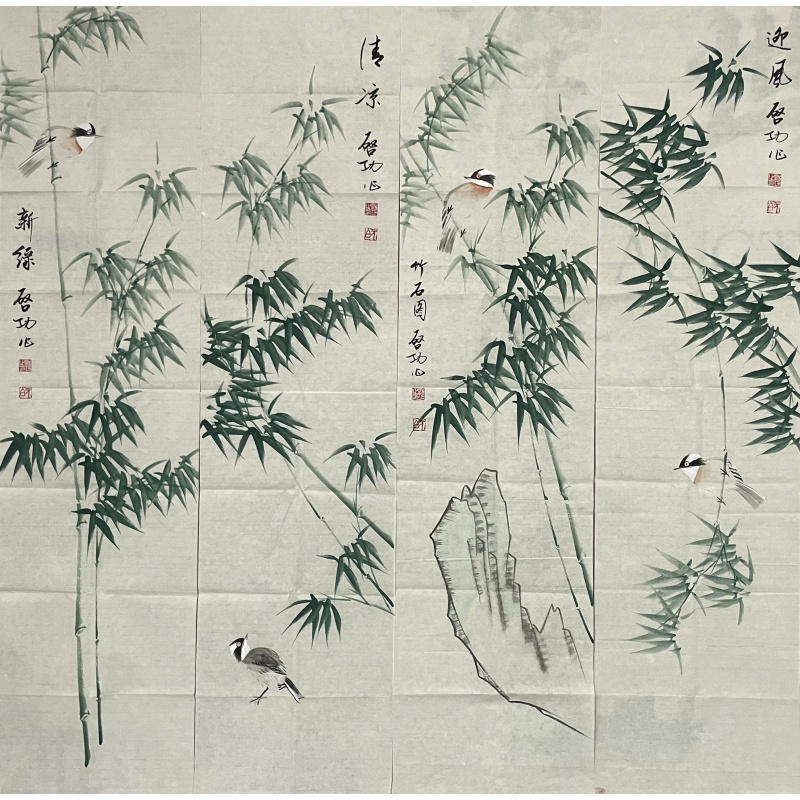 迎风 启功作
清凉 启功作
竹石图 启功作
新绿 启功作